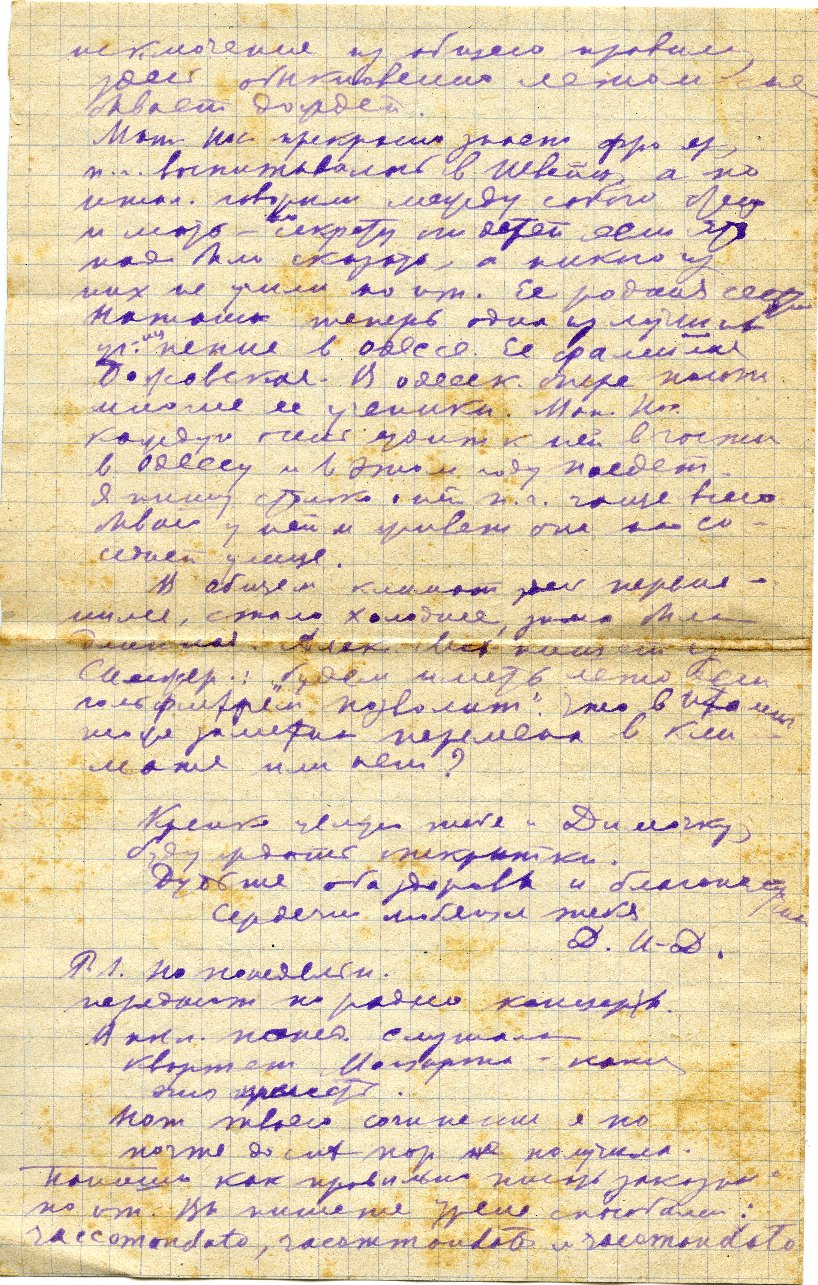 исключения из общего правила,
здесь обыкновенно летом не
бывает дождей.
Мат. Ив. прекрасно знает фр. яз.,
п.ч. воспитывалась в Швейц., а по
итал. говорили между собою отец
и мать – по секрету от детей если
надо было сказать, а никого из
них не учили по ит. Ее родная сестра
Наташа теперь одна из лучших
пения в Одессе. Ее фамилия
В одесск. опере поют
многие ее ученики. Мат. Ив.
каждую осень ездит к ней в гости
в Одессу и в этом году поедет.
Я пишу о ней п.ч. чаще всего
бываю у ней и живет она на со-
седней улице.
В общем климат здесь переме-
нился, стало холоднее, зима была
длинная. Алек. пишет из
Симфер.: "будем иметь лето если
гольфштрем позволит". Что в Италии
тоже заметна перемена в кли-
мате или нет?
Крепко целую тебя и Димочку,
буду ждать открытки.
Будьте оба здоровы и благополучны
Сердечно любящая тебя
Д. И-Д.
P.S. По понедельн.
передают по радио концерты.
В понед. слушала
квартет Моцарта – какая
это прелесть.
Нот твоего сочинения я по
почте до сих пор не получила.
Напиши как правильно писать заказное
по ит. Вы пишете тремя способами:
raccomandato, racommandato и racomandato